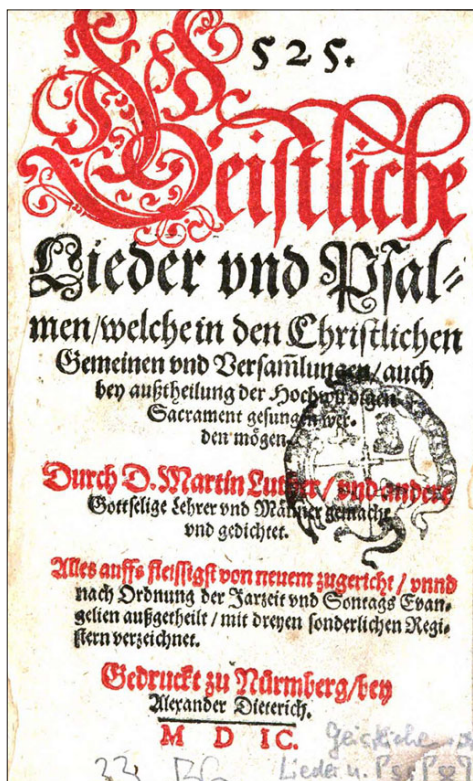 525.
Geistliche
Lieder vnd Psal⸗
men/welche in den Christlichen
Gemeinen vnd Versam̄lungen/auch
bey außtheilung der Hochwürdigen
Sacrament gesungen wer⸗
den mögen.
Durch D. Martin Luther/vnd andere
Gottselige Lehrer vnd Männer gemacht
vnd gedichtet.
Alles auffs fleissigst von neuem zugericht/vnnd
nach Ordnung der Jarzeit vnd Sontags Evan⸗
gelien außgetheilt/mit dreyen sonderlichen Regi⸗
stern verzeichnet.
Gedruckt zu Nürmberg/bey
Alexander Dieterich.
M D IC.
Geistliche
Lieder u.